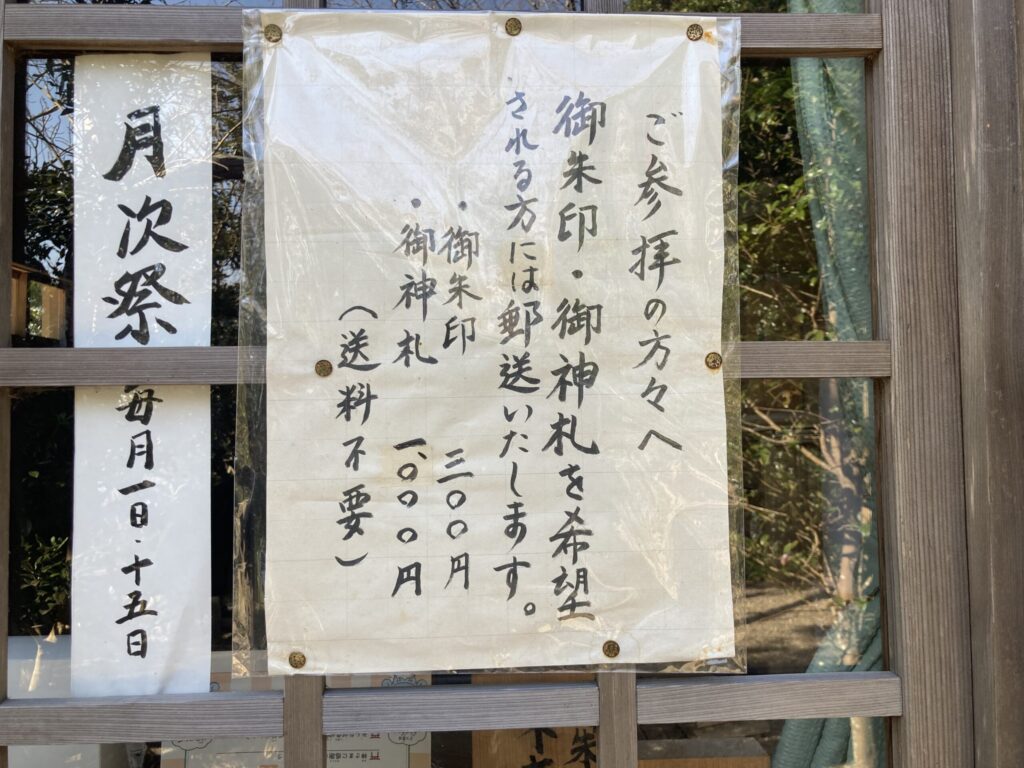 ご参拝の方々へ
御朱印・御神札を希望
される方には郵送いたします。
・御朱印 三〇〇円
・御神札 一、〇〇〇円
（送料不要）
月次祭 毎月一日・十五日